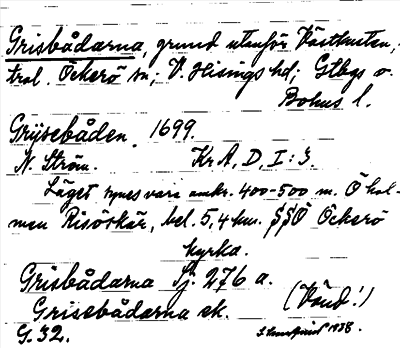 Grisbådarna, grund utanför Västkusten,
tral. Öckerö sn; V. Hisings hd; Gtbgs o.
Bohus l.
Grijsebåden. 1699.
N. Ström. KrA, D, I: 3.
Läget synes vara omkr. 400-500 m. Ö hol-
men Risöskär, bel. 5,4 km. SSÖ Öckerö
kyrka.
Grisbådarna Sj. 276 a.
Grisebådarna ek. (Vänd!)
G. 32. 1938.